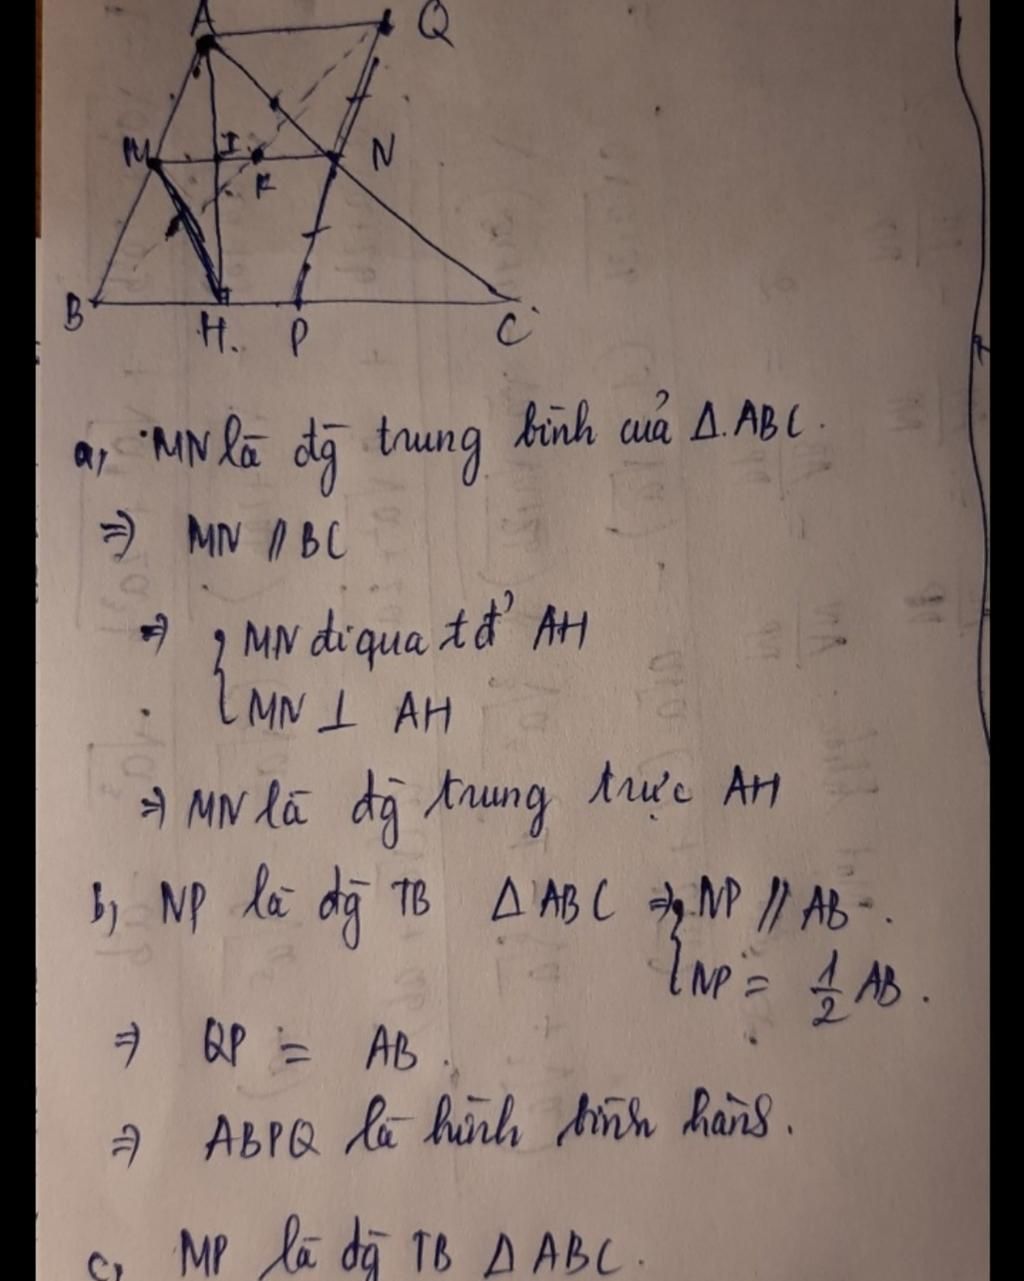 A Q
M I K N
B H. P C
a, MN là đg trung bình của Δ.ABC.
=> MN // BC
=> { MN đi qua tđ' AH
MN ⊥ AH
=> MN là đg trung trực AH
b, NP là đg TB Δ ABC => { NP // AB.
NP = 1/2 AB.
=> QP = AB.
=> ABPQ là hình bình hành.
c, MP là đg TB Δ ABC.